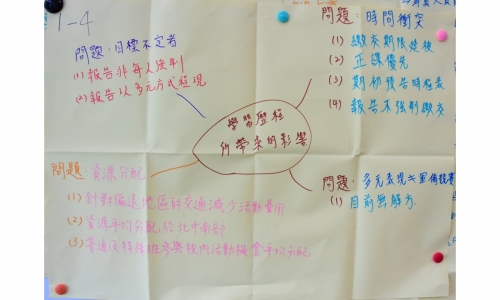 1-4
問題:目標不定者
(1)報告非每人強制
(2)報告以多元方式經現
學習歷程
所帶來的影響
問題:時間衝突
(1)繳交期限延後
(2)正課優先
(3)期初預告時程表
(4)報告不強制繳交
問題:資源分配
(1)針對偏遠地區的交通減少活動費用
(2)資源平均分配於北中南部
(3)普通及特殊班參與校內活動機會平均分配
問題:多元表現
(1)目前無解方.